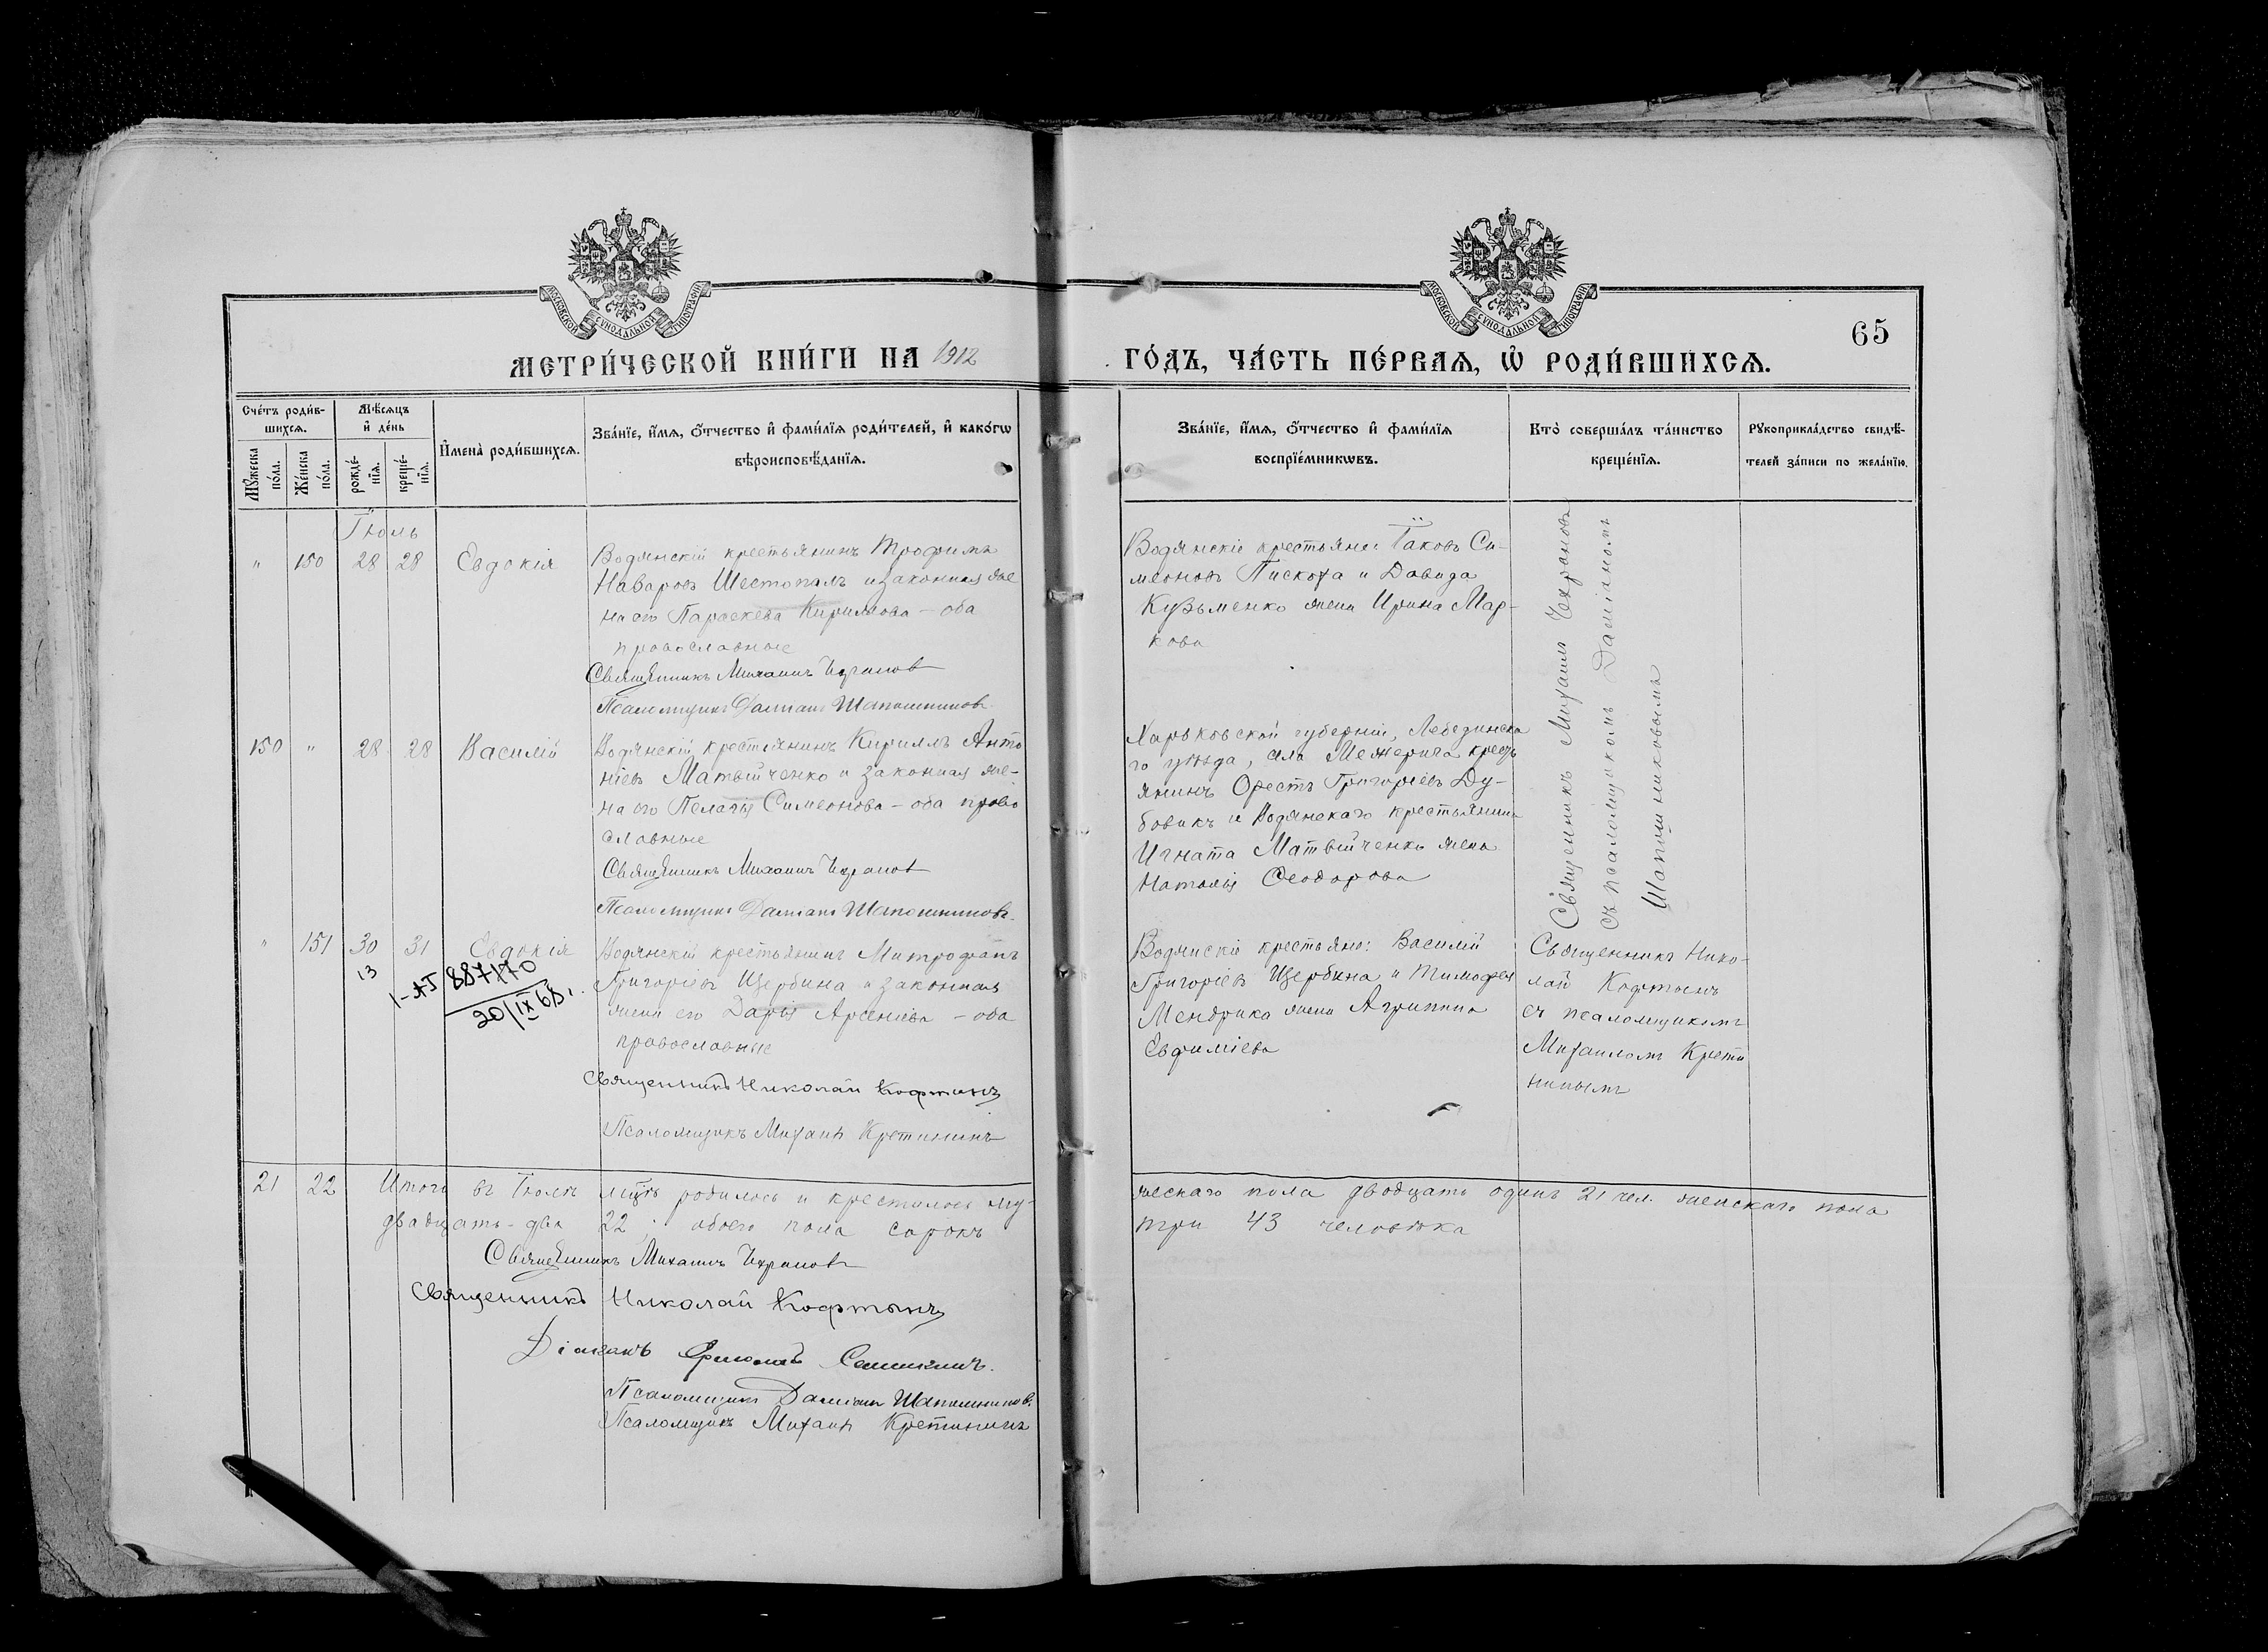 МОСКОВСКОЙ СѴНОДАЛЬНОЙ ТИПОГРАФІИ
МОСКОВСКОЙ СѴНОДАЛЬНОЙ ТИПОГРАФІИ
65
МЕТРИ́ЧЕСКОЙ КНИ́ГИ НА 1912
ГО́ДЪ, ЧА́СТЬ ПЕ́РВАѦ, Ѡ҆ РОДИ́ВШИХСѦ.
Сче́тъ роди́в-
шихсѧ.
Мѣ́сѧцъ
и҆ де́нь
Мꙋ́жеска
по́ла.
Же́нска
по́ла.
рожде́-
нїѧ.
креще́-
нїѧ.
И҆мена̀ роди́вшихсѧ.
Зва́нїе, и҆́мѧ, ѻ҆́тчество и҆ фами́лїѧ роди́телей, и҆ како́гѡ
вѣроисповѣ́данїѧ.
Зва́нїе, и҆́мѧ, ѻ҆́тчество и҆ фами́лїѧ
воспрїе́мникѡвъ.
Кто̀ соверша́лъ та́инство
креще́нїѧ.
Рꙋкоприкла́дство свидѣ́-
телей за́писи по жела́нїю.
Іюль
" 150 28 28 Евдокія
Водянскій крестьянинъ Трофимъ
Назаровъ Шестопалъ и законная же
на его Параскева Кириллова – оба
православные
Священникъ Михаилъ Чехранов
Псаломщикъ Даміанъ Шапошниковъ.
Водянскіе крестьяне: Іаковъ Си-
меоновъ Пискоха и Давида
Кузьменко жена Ирина Мар-
кова
Священникъ Михаилъ Чехрановъ
съ псаломщикомъ Даміаномъ
Шапошниковымъ
150 " 28 28 Василій
Водянскій крестьянинъ Кириллъ Анто
ніевъ Матвійченко и законная же-
на его Пелагія Симеонова – оба право
славные
Священникъ Михаилъ Чехранов
Псаломщикъ Даміанъ Шапошниковъ.
Харьковской губерніи, Лебединска
го уѣзда, села Межерича кресть
янинъ Орестъ Григоріевъ Ду-
бовикъ и Водянскаго крестьянина
Игната Матвійченко жена
Наталія Ѳеодорова
" 151 30 31 Евдокія
13
1-АЈ 887170
20/IX 68.
Водянскій крестьянинъ Митрофанъ
Григоріевъ Щербина и законная
жена его Дарія Арсеніева – оба
православные
Священникъ Николай Кофтынъ
Псаломщикъ Михаилъ Кретининъ
Водянскіе крестьяне: Василій
Григоріевъ Щербина и Тимофея
Мендрика жена Агриппина
Евфиміева
Священникъ Нико-
лай Кофтынъ
съ псаломщикомъ
Михаиломъ Крети
нинымъ
21 22 Итого въ Іюлѣ мцѣ родилось и крестилось му-
жескаго пола двадцать одинъ 21 чел. женскаго пола
двадцать-два 22 обоего пола сорокъ
три 43 человѣка
Священникъ Михаилъ Чехранов
Священникъ Николай Кофтынъ
Діаконъ
Псаломщикъ Даміанъ Шапошников.
Псаломщикъ Михаилъ Кретининъ